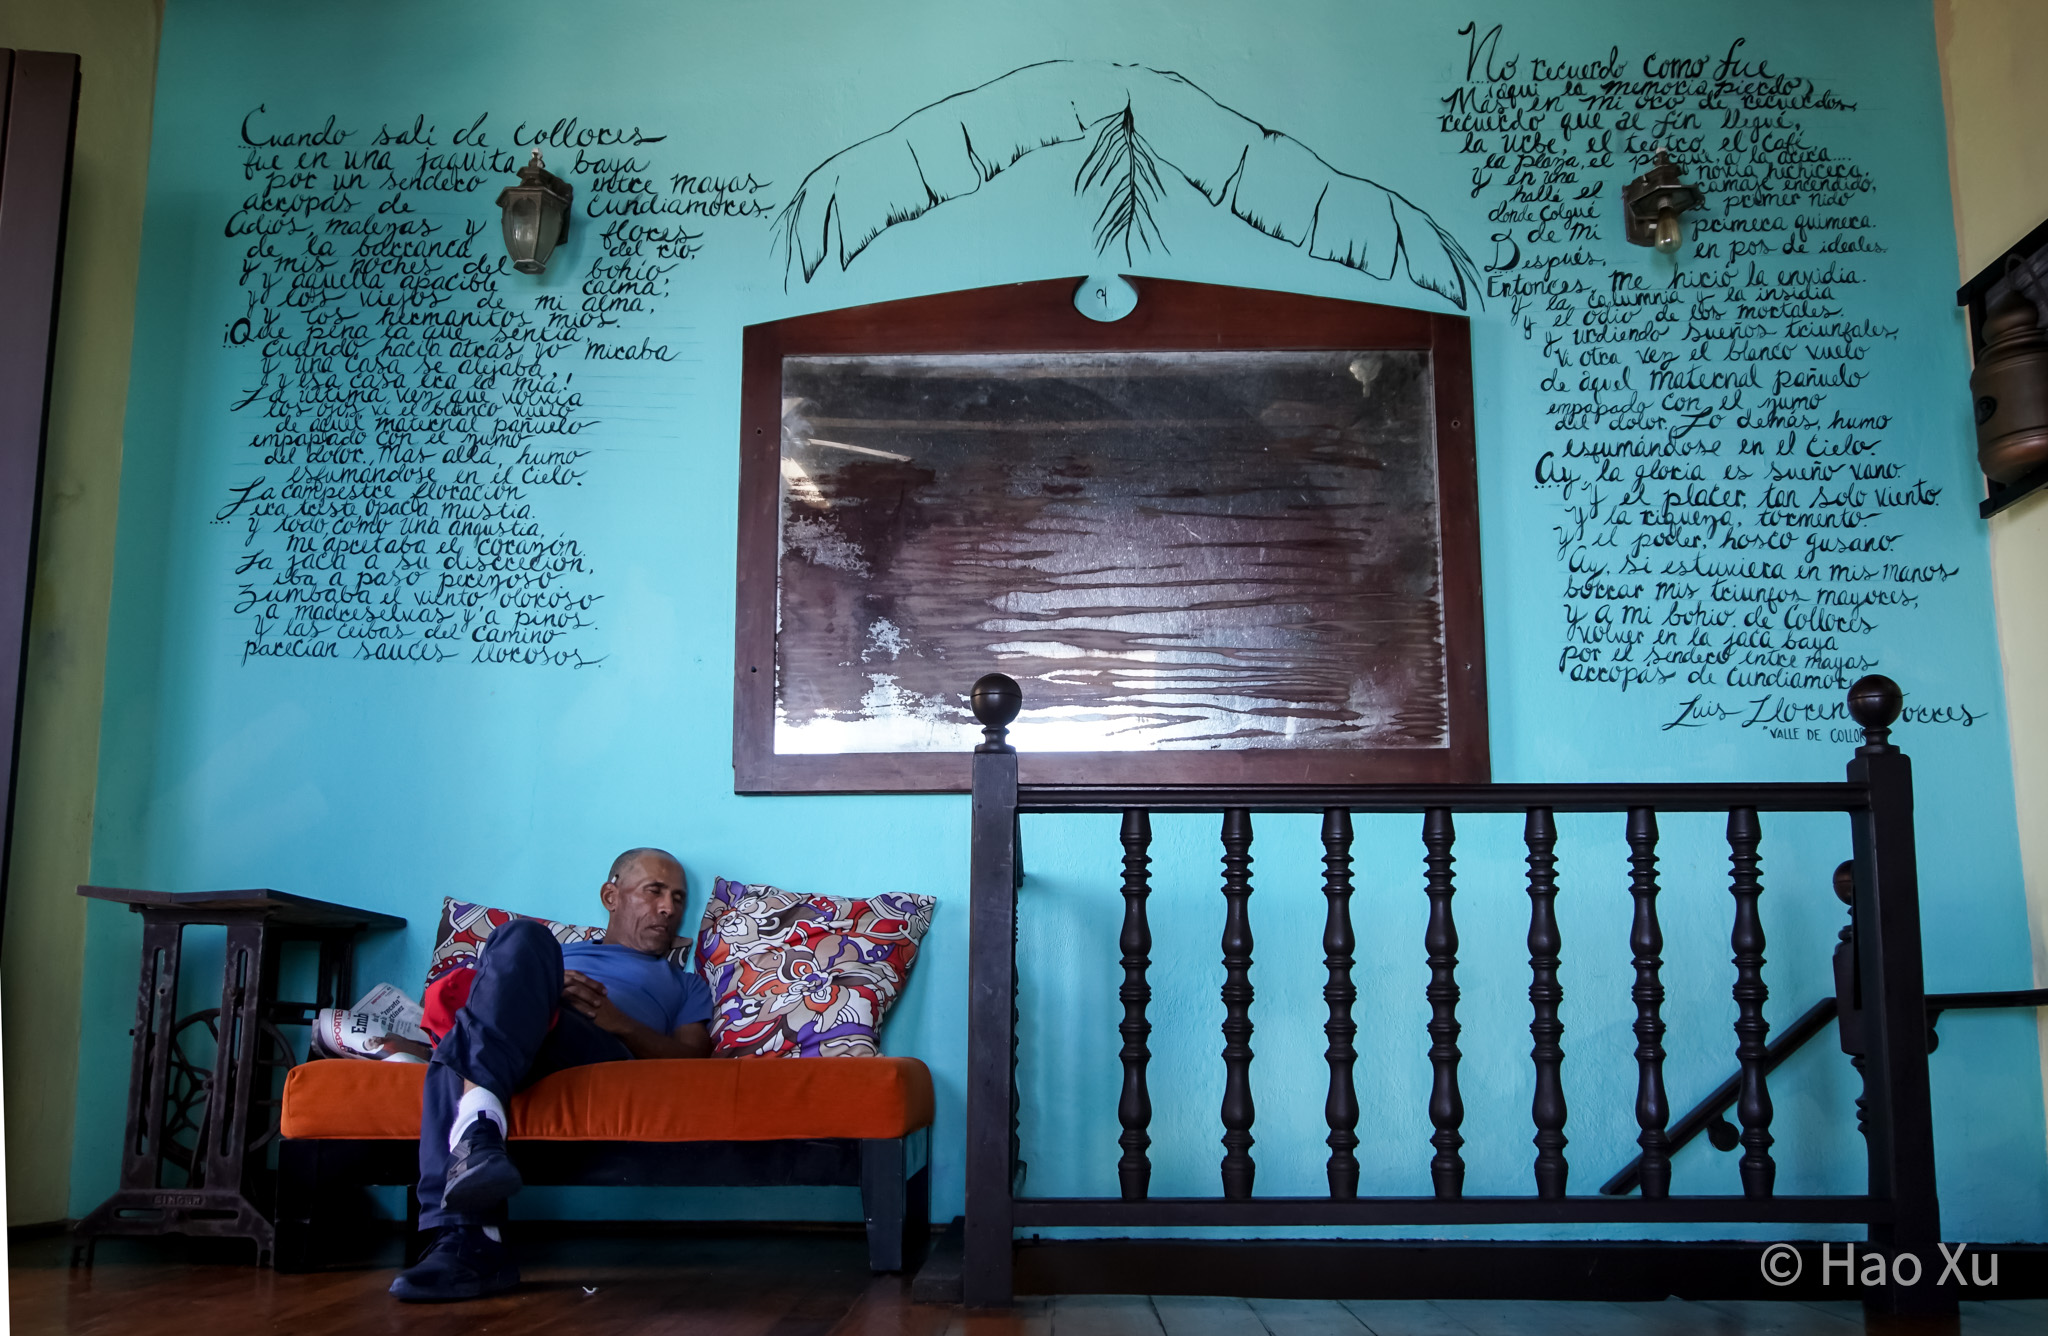 Cuando salí de Collores
fue en una jaquita baya
por un sendero entre mayas
arropás de cundiamores.
Adiós, malezas y flores
de la barranca del río,
y mis noches del bohío
y aquella apacible calma;
y los viejos de mi alma,
y los hermanitos míos.
¡Qué pena la que sentía
cuando hacia atrás yo miraba
y una casa se alejaba,
y esa casa era la mía!
La última vez que volvía
los ojos vi el blanco vuelo
de aquel maternal pañuelo
empapado con el zumo
del dolor. Mas allá, humo
esfumándose en el cielo.
La campestre floración
era triste opaca, mustia.
y todo como una angustia,
me apretaba el corazón.
La jaca a su discreción,
iba a paso perezoso.
Zumbaba el viento oloroso
a madreselvas y a pinos.
y las ceibas del camino
parecían sauces llorosos.
No recuerdo como fue
(aquí la memoria pierdo)
Más en mi oro de recuerdos,
recuerdo que al fin llegué,
la urbe, el teatro, el café,
la plaza, el parque, a la acera....
y en una novia hichicera.
hallé el ramaje encendido,
donde colgué primer nido
de mi primera quimera.
Después, en pos de ideales.
Entonces, me hirió la envidia.
y la calumnia y la insidia
y el odio de los mortales.
y urdiendo sueños triunfales,
vi otra vez el blanco vuelo
de aquel maternal pañuelo
empapado con el zumo
del dolor. Lo demás, humo
esfumándose en el cielo.
Ay, la gloria es sueño vano.
y el placer, tan solo viento.
y la riqueza, tormento.
y el poder, hosco gusano.
Ay, si estuviera en mis manos
borrar mis triunfos mayores,
y a mi bohío de Collores
volver en la jaca baya
por el sendero entre mayas
arropás de cundiamores
Luis Lloren Torres
"VALLE DE COLLOR
DEPORTES
Emb
SINGER
© Hao Xu